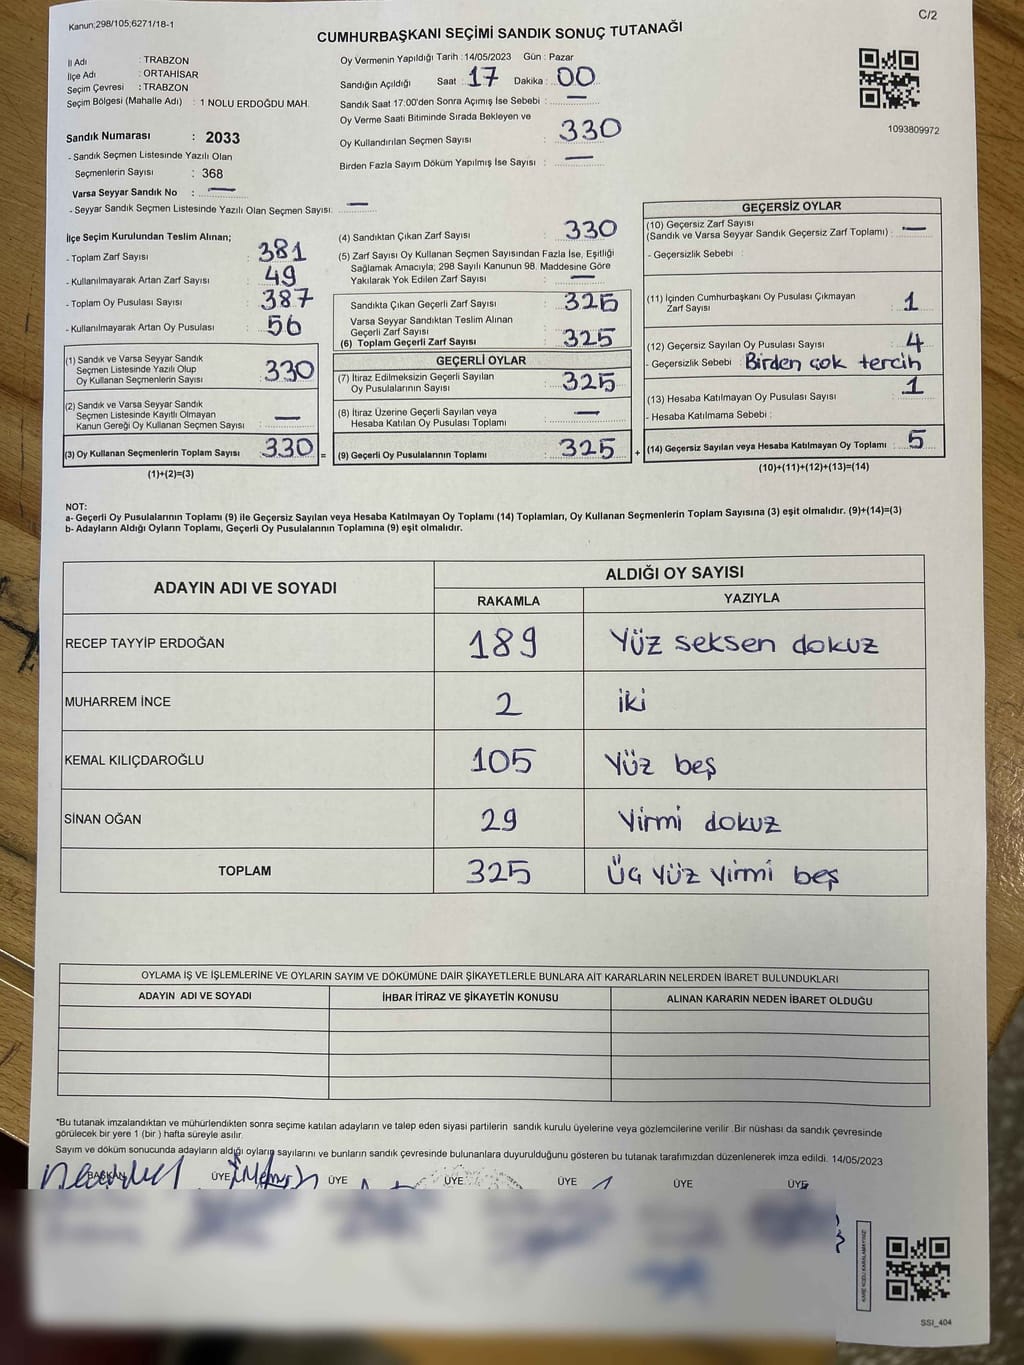 Kanun;298/105;6271/18-1
C/2
CUMHURBAŞKANI SEÇİMİ SANDIK SONUÇ TUTANAĞI
İl Adı : TRABZON
İlçe Adı : ORTAHİSAR
Seçim Çevresi : TRABZON
Seçim Bölgesi (Mahalle Adı) : 1 NOLU ERDOĞDU MAH.
Sandık Numarası : 2033
- Sandık Seçmen Listesinde Yazılı Olan
Seçmenlerin Sayısı : 368
Varsa Seyyar Sandık No : —
- Seyyar Sandık Seçmen Listesinde Yazılı Olan Seçmen Sayısı: —
Oy Vermenin Yapıldığı Tarih : 14/05/2023 Gün : Pazar
Sandığın Açıldığı Saat : 17 Dakika : 00
Sandık Saat 17:00'den Sonra Açımış İse Sebebi : —
Oy Verme Saati Bitiminde Sırada Bekleyen ve
Oy Kullandırılan Seçmen Sayısı : 330
Birden Fazla Sayım Döküm Yapılmış İse Sayısı : —
1093809972
İlçe Seçim Kurulundan Teslim Alınan;
- Toplam Zarf Sayısı : 381
- Kullanılmayarak Artan Zarf Sayısı : 49
- Toplam Oy Pusulası Sayısı : 387
- Kullanılmayarak Artan Oy Pusulası : 56
(1) Sandık ve Varsa Seyyar Sandık
Seçmen Listesinde Yazılı Olup
Oy Kullanan Seçmenlerin Sayısı : 330
(2) Sandık ve Varsa Seyyar Sandık
Seçmen Listesinde Kayıtlı Olmayan
Kanun Gereği Oy Kullanan Seçmen Sayısı : —
(3) Oy Kullanan Seçmenlerin Toplam Sayısı : 330 =
(1)+(2)=(3)
(4) Sandıktan Çıkan Zarf Sayısı : 330
(5) Zarf Sayısı Oy Kullanan Seçmen Sayısından Fazla İse, Eşitliği
Sağlamak Amacıyla; 298 Sayılı Kanunun 98. Maddesine Göre
Yakılarak Yok Edilen Zarf Sayısı : —
Sandıkta Çıkan Geçerli Zarf Sayısı : 325
Varsa Seyyar Sandıktan Teslim Alınan
Geçerli Zarf Sayısı :
(6) Toplam Geçerli Zarf Sayısı : 325
GEÇERLİ OYLAR
(7) İtiraz Edilmeksizin Geçerli Sayılan
Oy Pusulalarının Sayısı : 325
(8) İtiraz Üzerine Geçerli Sayılan veya
Hesaba Katılan Oy Pusulası Toplamı : —
(9) Geçerli Oy Pusulalarının Toplamı : 325 +
GEÇERSİZ OYLAR
(10) Geçersiz Zarf Sayısı
(Sandık ve Varsa Seyyar Sandık Geçersiz Zarf Toplamı) : —
- Geçersizlik Sebebi :
(11) İçinden Cumhurbaşkanı Oy Pusulası Çıkmayan
Zarf Sayısı : 1
(12) Geçersiz Sayılan Oy Pusulası Sayısı : 4
- Geçersizlik Sebebi : Birden çok tercih
(13) Hesaba Katılmayan Oy Pusulası Sayısı : 1
- Hesaba Katılmama Sebebi :
(14) Geçersiz Sayılan veya Hesaba Katılmayan Oy Toplamı : 5
(10)+(11)+(12)+(13)=(14)
NOT:
a- Geçerli Oy Pusulalarının Toplamı (9) ile Geçersiz Sayılan veya Hesaba Katılmayan Oy Toplamı (14) Toplamları, Oy Kullanan Seçmenlerin Toplam Sayısına (3) eşit olmalıdır. (9)+(14)=(3)
b- Adayların Aldığı Oyların Toplamı, Geçerli Oy Pusulalarının Toplamına (9) eşit olmalıdır.
ADAYIN ADI VE SOYADI ALDIĞI OY SAYISI
RAKAMLA YAZIYLA
RECEP TAYYİP ERDOĞAN 189 Yüz seksen dokuz
MUHARREM İNCE 2 iki
KEMAL KILIÇDAROĞLU 105 Yüz beş
SİNAN OĞAN 29 Yirmi dokuz
TOPLAM 325 Üç yüz yirmi beş
OYLAMA İŞ VE İŞLEMLERİNE VE OYLARIN SAYIM VE DÖKÜMÜNE DAİR ŞİKAYETLERLE BUNLARA AİT KARARLARIN NELERDEN İBARET BULUNDUKLARI
ADAYIN ADI VE SOYADI İHBAR İTİRAZ VE ŞİKAYETİN KONUSU ALINAN KARARIN NEDEN İBARET OLDUĞU
*Bu tutanak imzalandıktan ve mühürlendikten sonra seçime katılan adayların ve talep eden siyasi partilerin sandık kurulu üyelerine veya gözlemcilerine verilir .Bir nüshası da sandık çevresinde
görülecek bir yere 1 (bir ) hafta süreyle asılır.
Sayım ve döküm sonucunda adayların aldığı oyların sayılarını ve bunların sandık çevresinde bulunanlara duyurulduğunu gösteren bu tutanak tarafımızdan düzenlenerek imza edildi. 14/05/2023
BAŞKAN ÜYE ÜYE ÜYE ÜYE ÜYE ÜYE
KARE KODU KARALAMAYINIZ!
SSİ_404